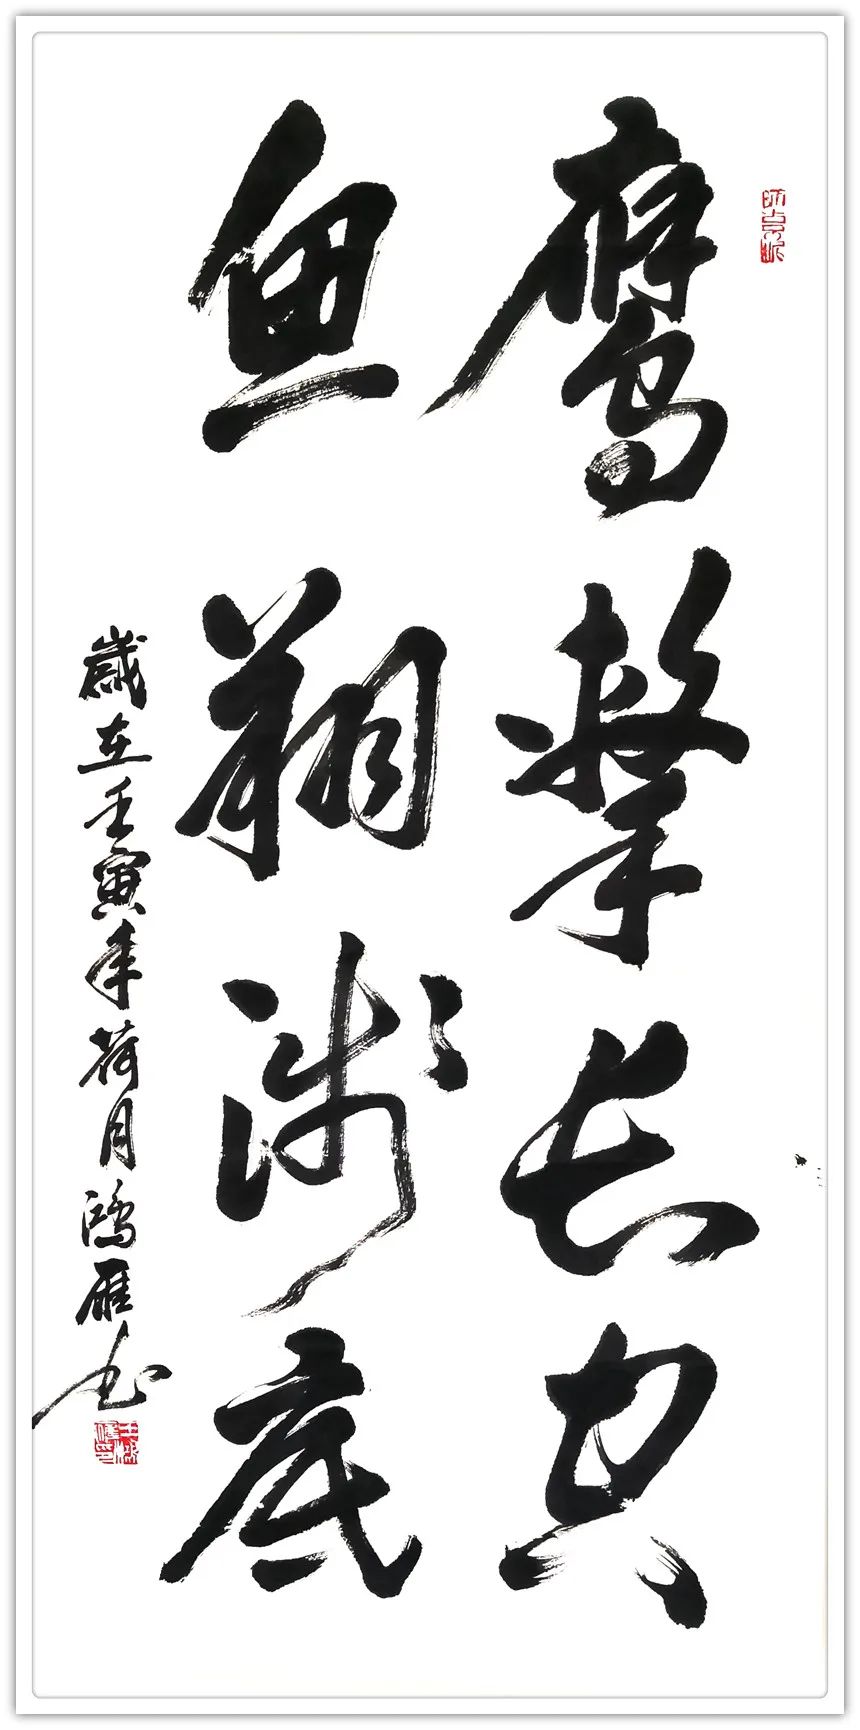 鹰擊长空
鱼翔浅底
歲在壬寅年荷月鸿雁书